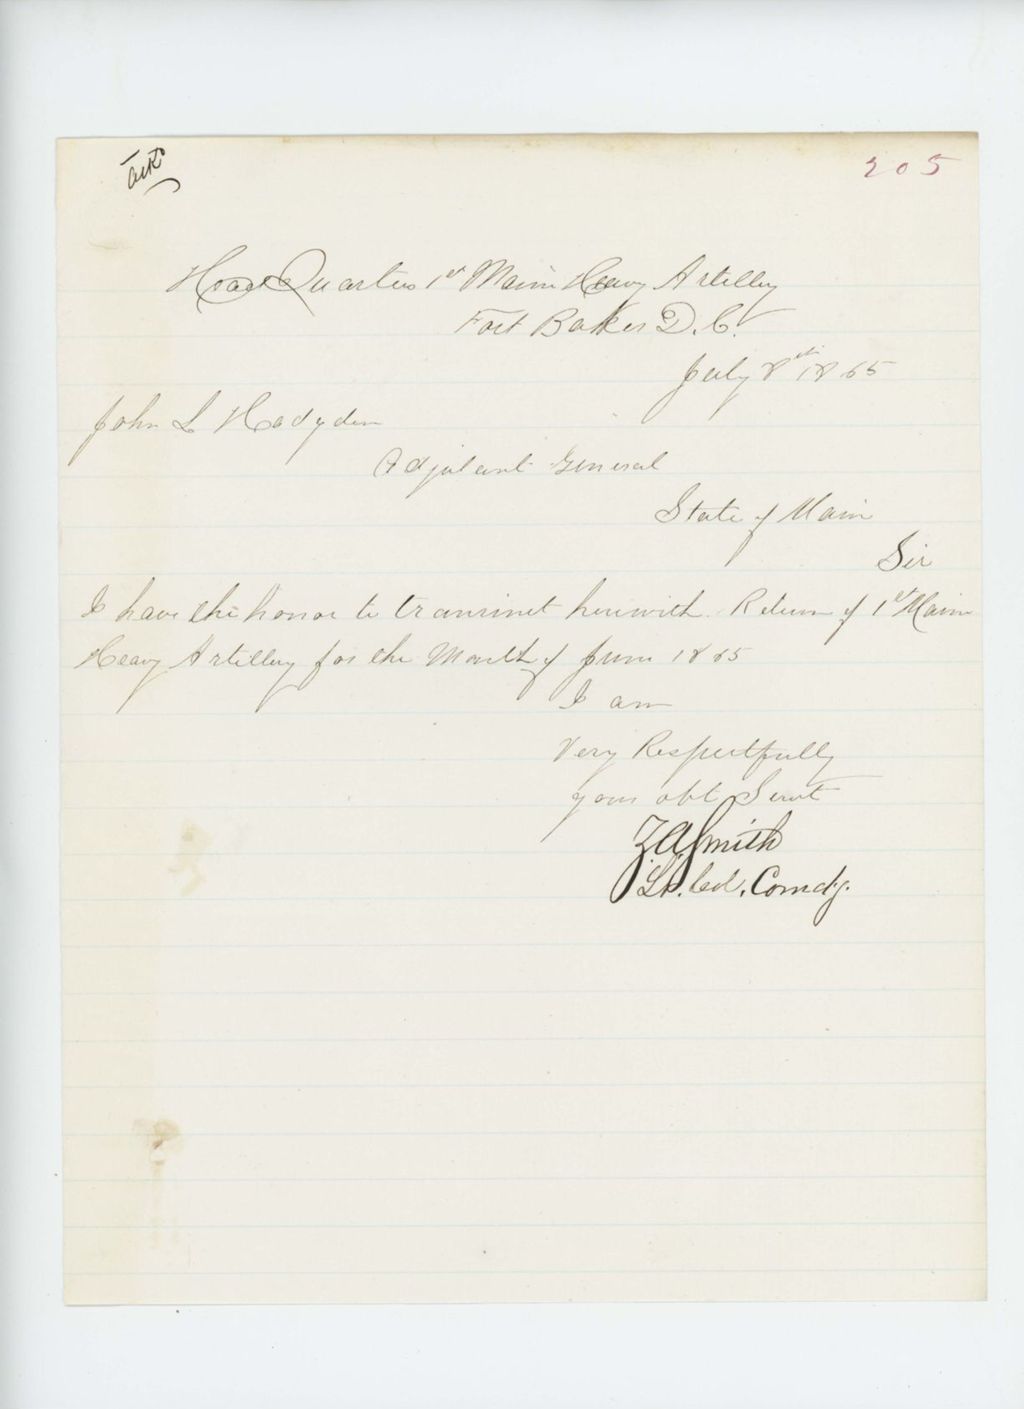 ack
205
Head Quarters 1st Maine Heavy Artillery
Fort Baker D.C.
July 8th 1865
John L Hodgdon
Adjutant General
State of Maine
Sir
I have the honor to transmit herewith Return of 1st Maine
Heavy Artillery for the Month of June 1865
I am
Very Respectfully
your obt Servt
Z A Smith
Lt. Col. Comdg.